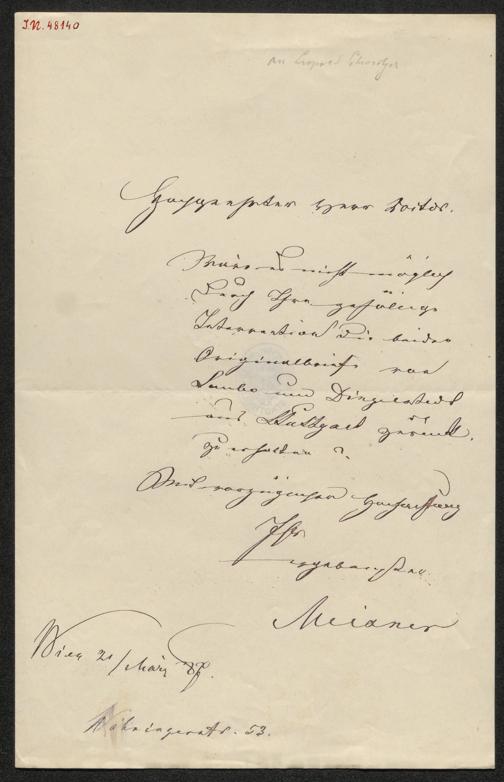 I.N. 48140
an Leopold
Hochgeehrter Herr
Wäre es nicht möglich
durch Ihre gefällige
Intervention die beiden
Originalbriefe von
Laube und Dingelstedt
aus Stuttgart zurück
zu erhalten?
Mit vorzüglicher Hochachtung
Ihr
ergebenster
Meixner
Wien 21/März
53.